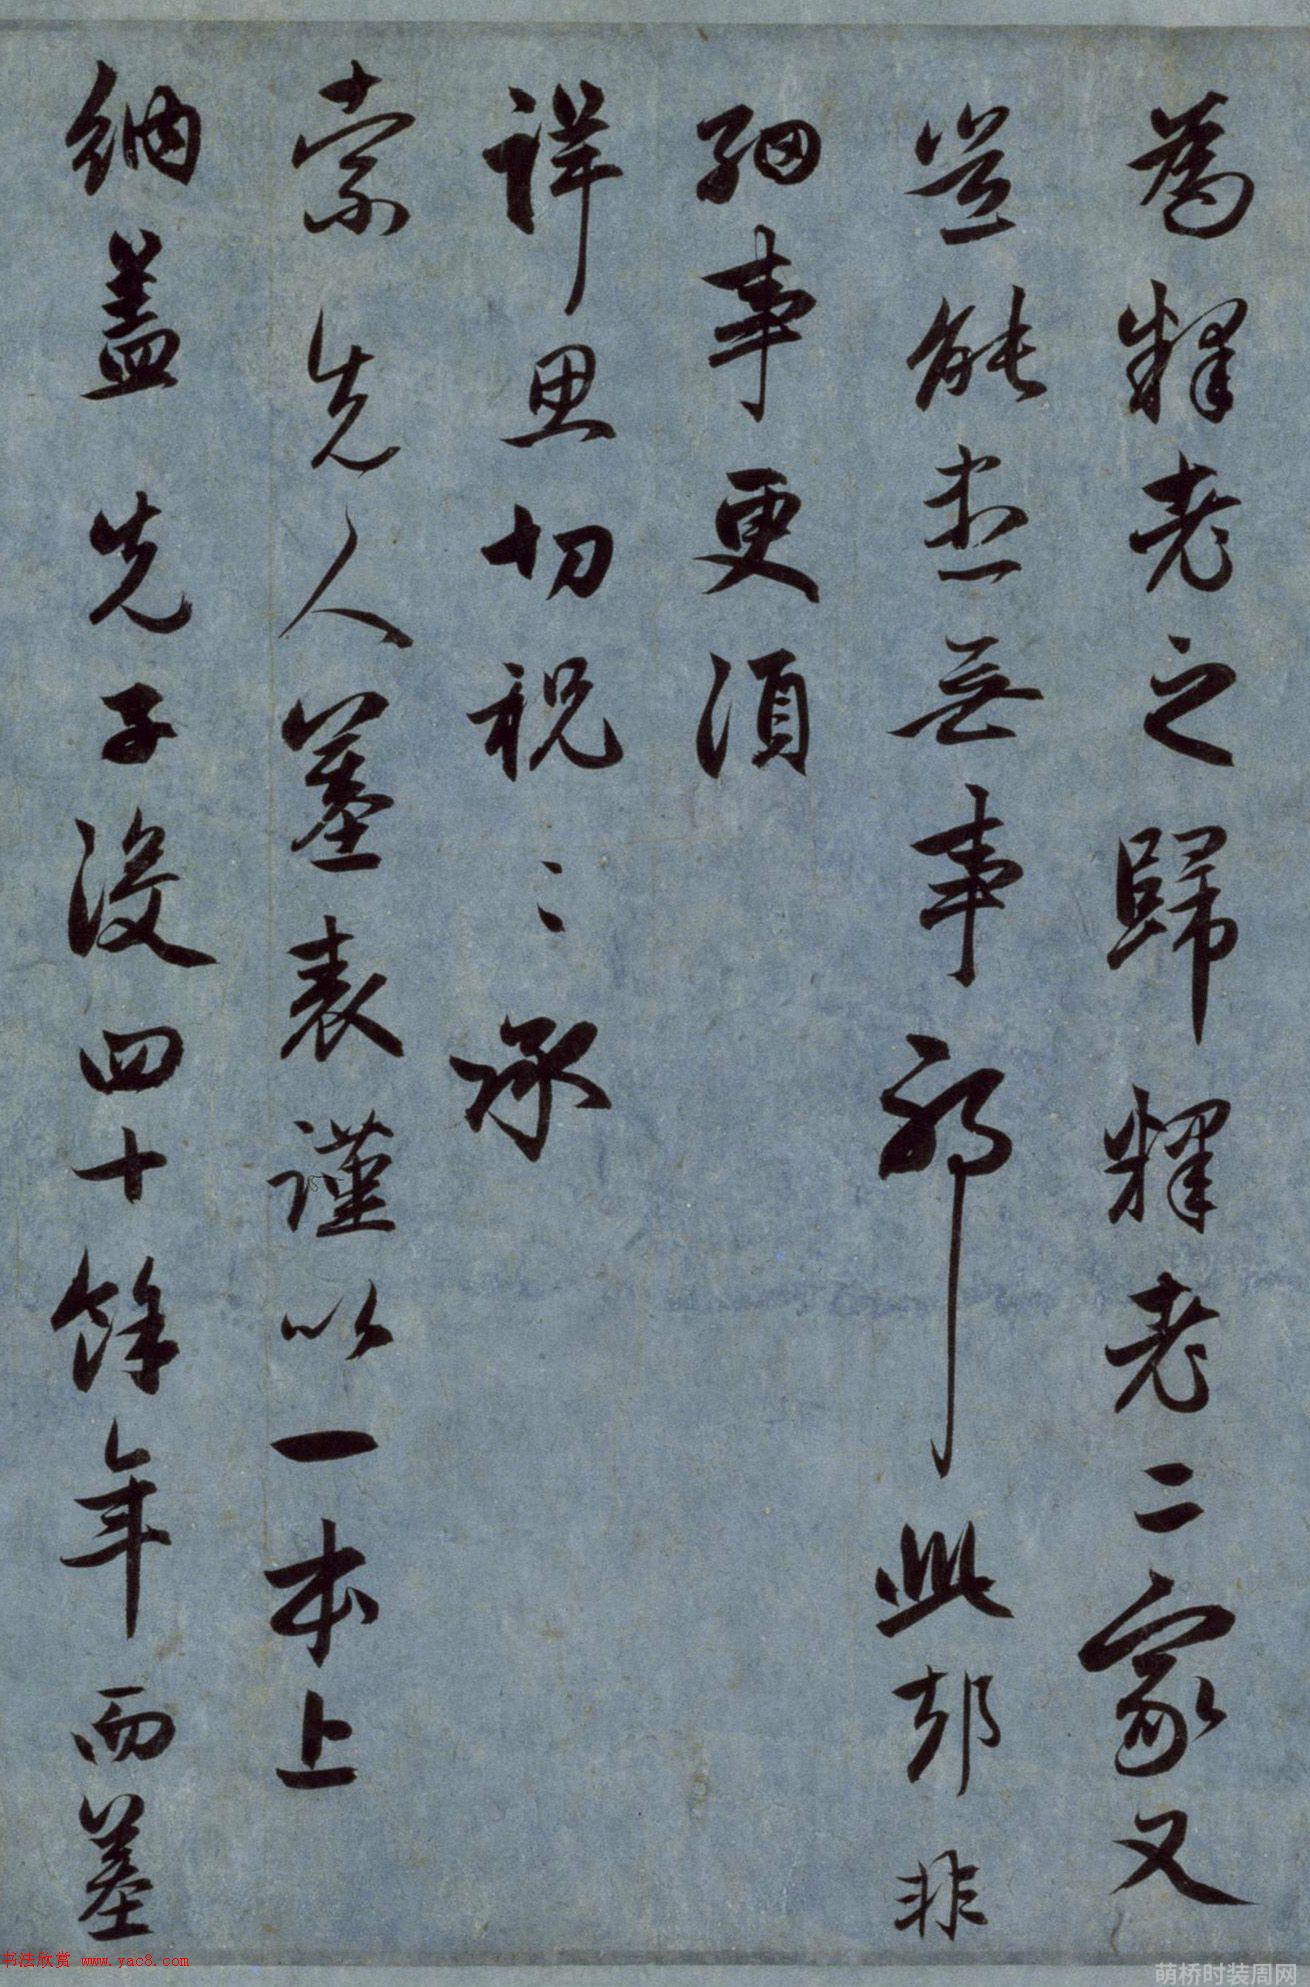 為釋老之歸釋老二家又
豈能盡無事耶此却非
細事更須
詳思切祝〻承
索先人墓表謹以一本上
納蓋先子沒四十餘年而墓
书法欣赏 www.yac8.com
萌桥时装周网